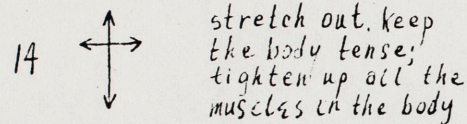 14
stretch out, keep
the body tense;
tighten up all the
muscles in the body